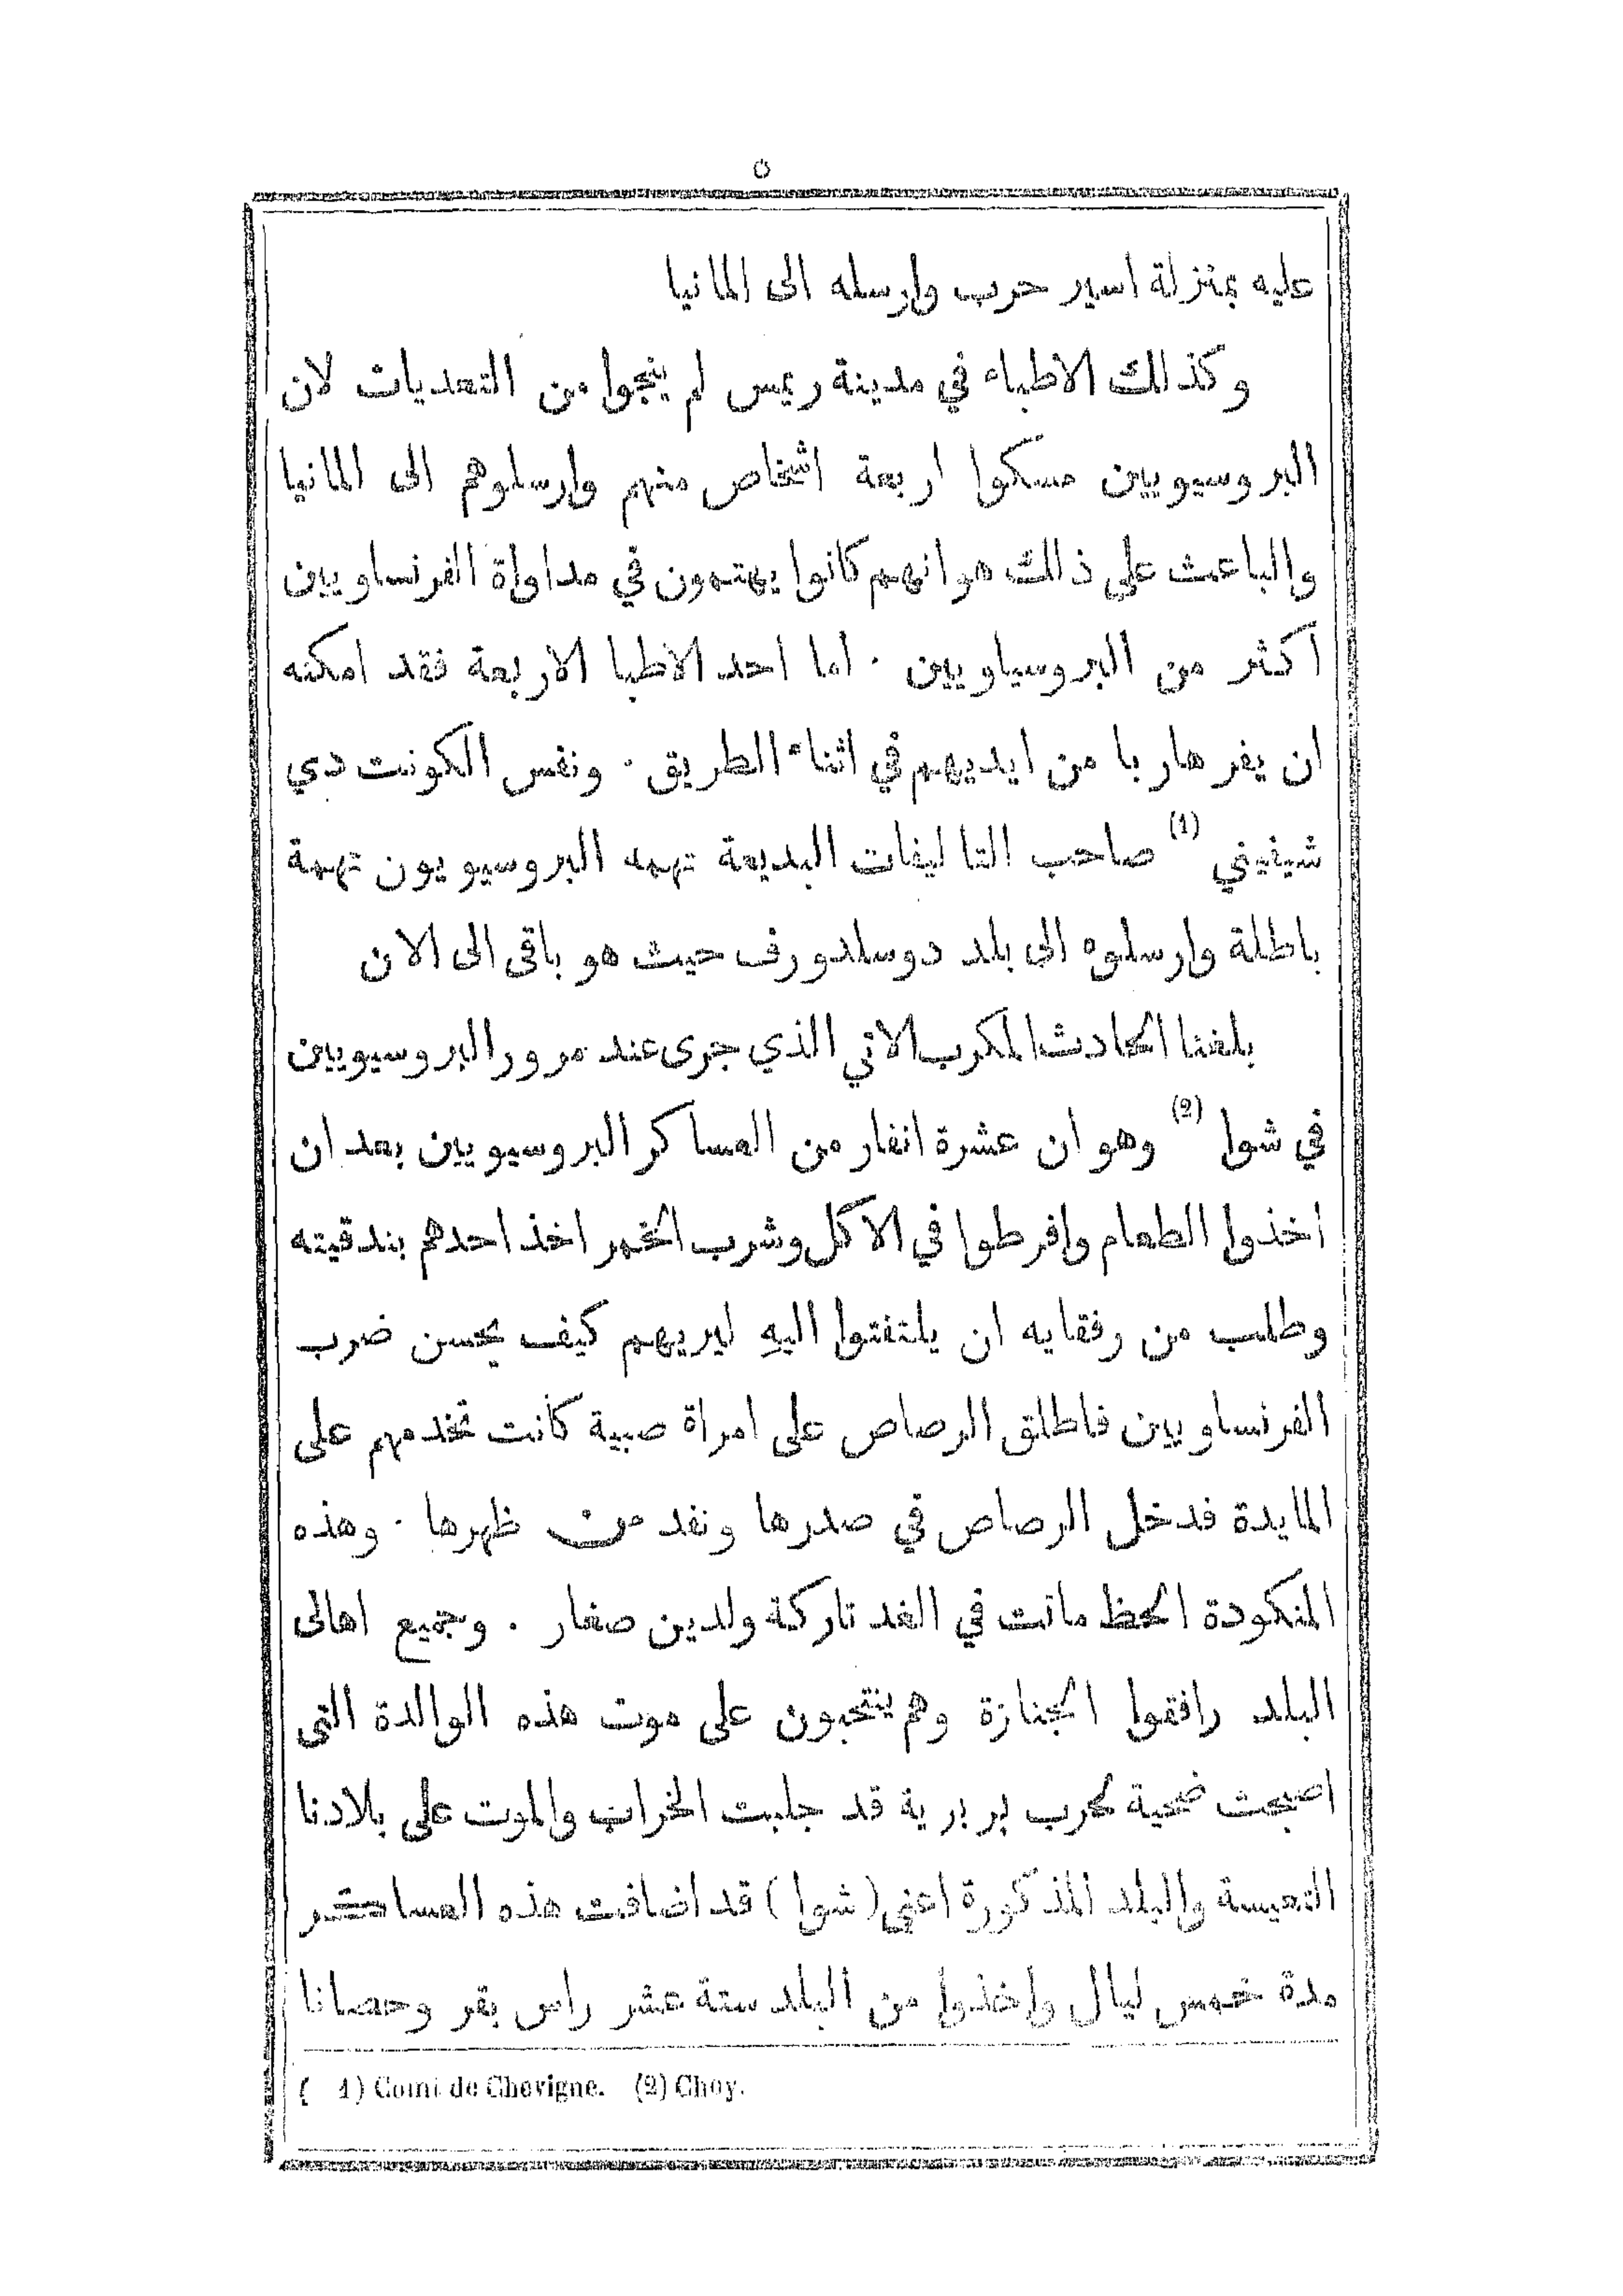 ٥
عليه بمنزلة اسير حرب وارسله الى المانيا
وكذلك الاطباء في مدينة ريمس لم ينجوا من التعديات لان
البروسيويين مسكوا اربعة اشخاص منهم وارسلوهم الى المانيا
والباعث على ذالك هو انهم كانوا يهتمون في مداواة الفرنساويين
اكثر من البروسياويين · اما احد الاطبا الاربعة فقد امكنه
ان يفر هاربا من ايديهم في اثناء الطريق · ونفس الكونت دي
شيفيني (1) صاحب التاليفات البديعة تهمه البروسيويون تهمة
باطلة وارسلوه الى بلد دوسلدورف حيث هو باقى الى الان
بلغنا الحادث المكرب الاتي الذي جرى عند مرور البروسيويين
في شوا (2) وهو ان عشرة انفار من العساكر البروسيويين بعد ان
اخذوا الطعام وافرطوا في الاكل وشرب الخمر اخذ احدهم بندقيته
وطلب من رفقايه ان يلتفتوا اليهِ ليريهم كيف يحسن ضرب
الفرنساويين فاطلق الرصاص على امراة صبية كانت تخدمهم على
المايدة فدخل الرصاص في صدرها ونفد من ظهرها · وهذه
المنكودة الحظ ماتت في الغد تاركة ولدين صغار . وجميع اهالى
البلد رافقوا الجنازة وهم ينتحبون على موت هذه الوالدة التى
اصبحت ضحية لحرب بربرية قد جلبت الخراب والموت على بلادنا
التعيسة والبلد المذكورة اعني (شوا) قد اضافت هذه العساكر
مدة خمس ليال واخذوا من البلد ستة عشر راس بقر وحصانا
( 1) Comt de Chevigne. (2) Choy.